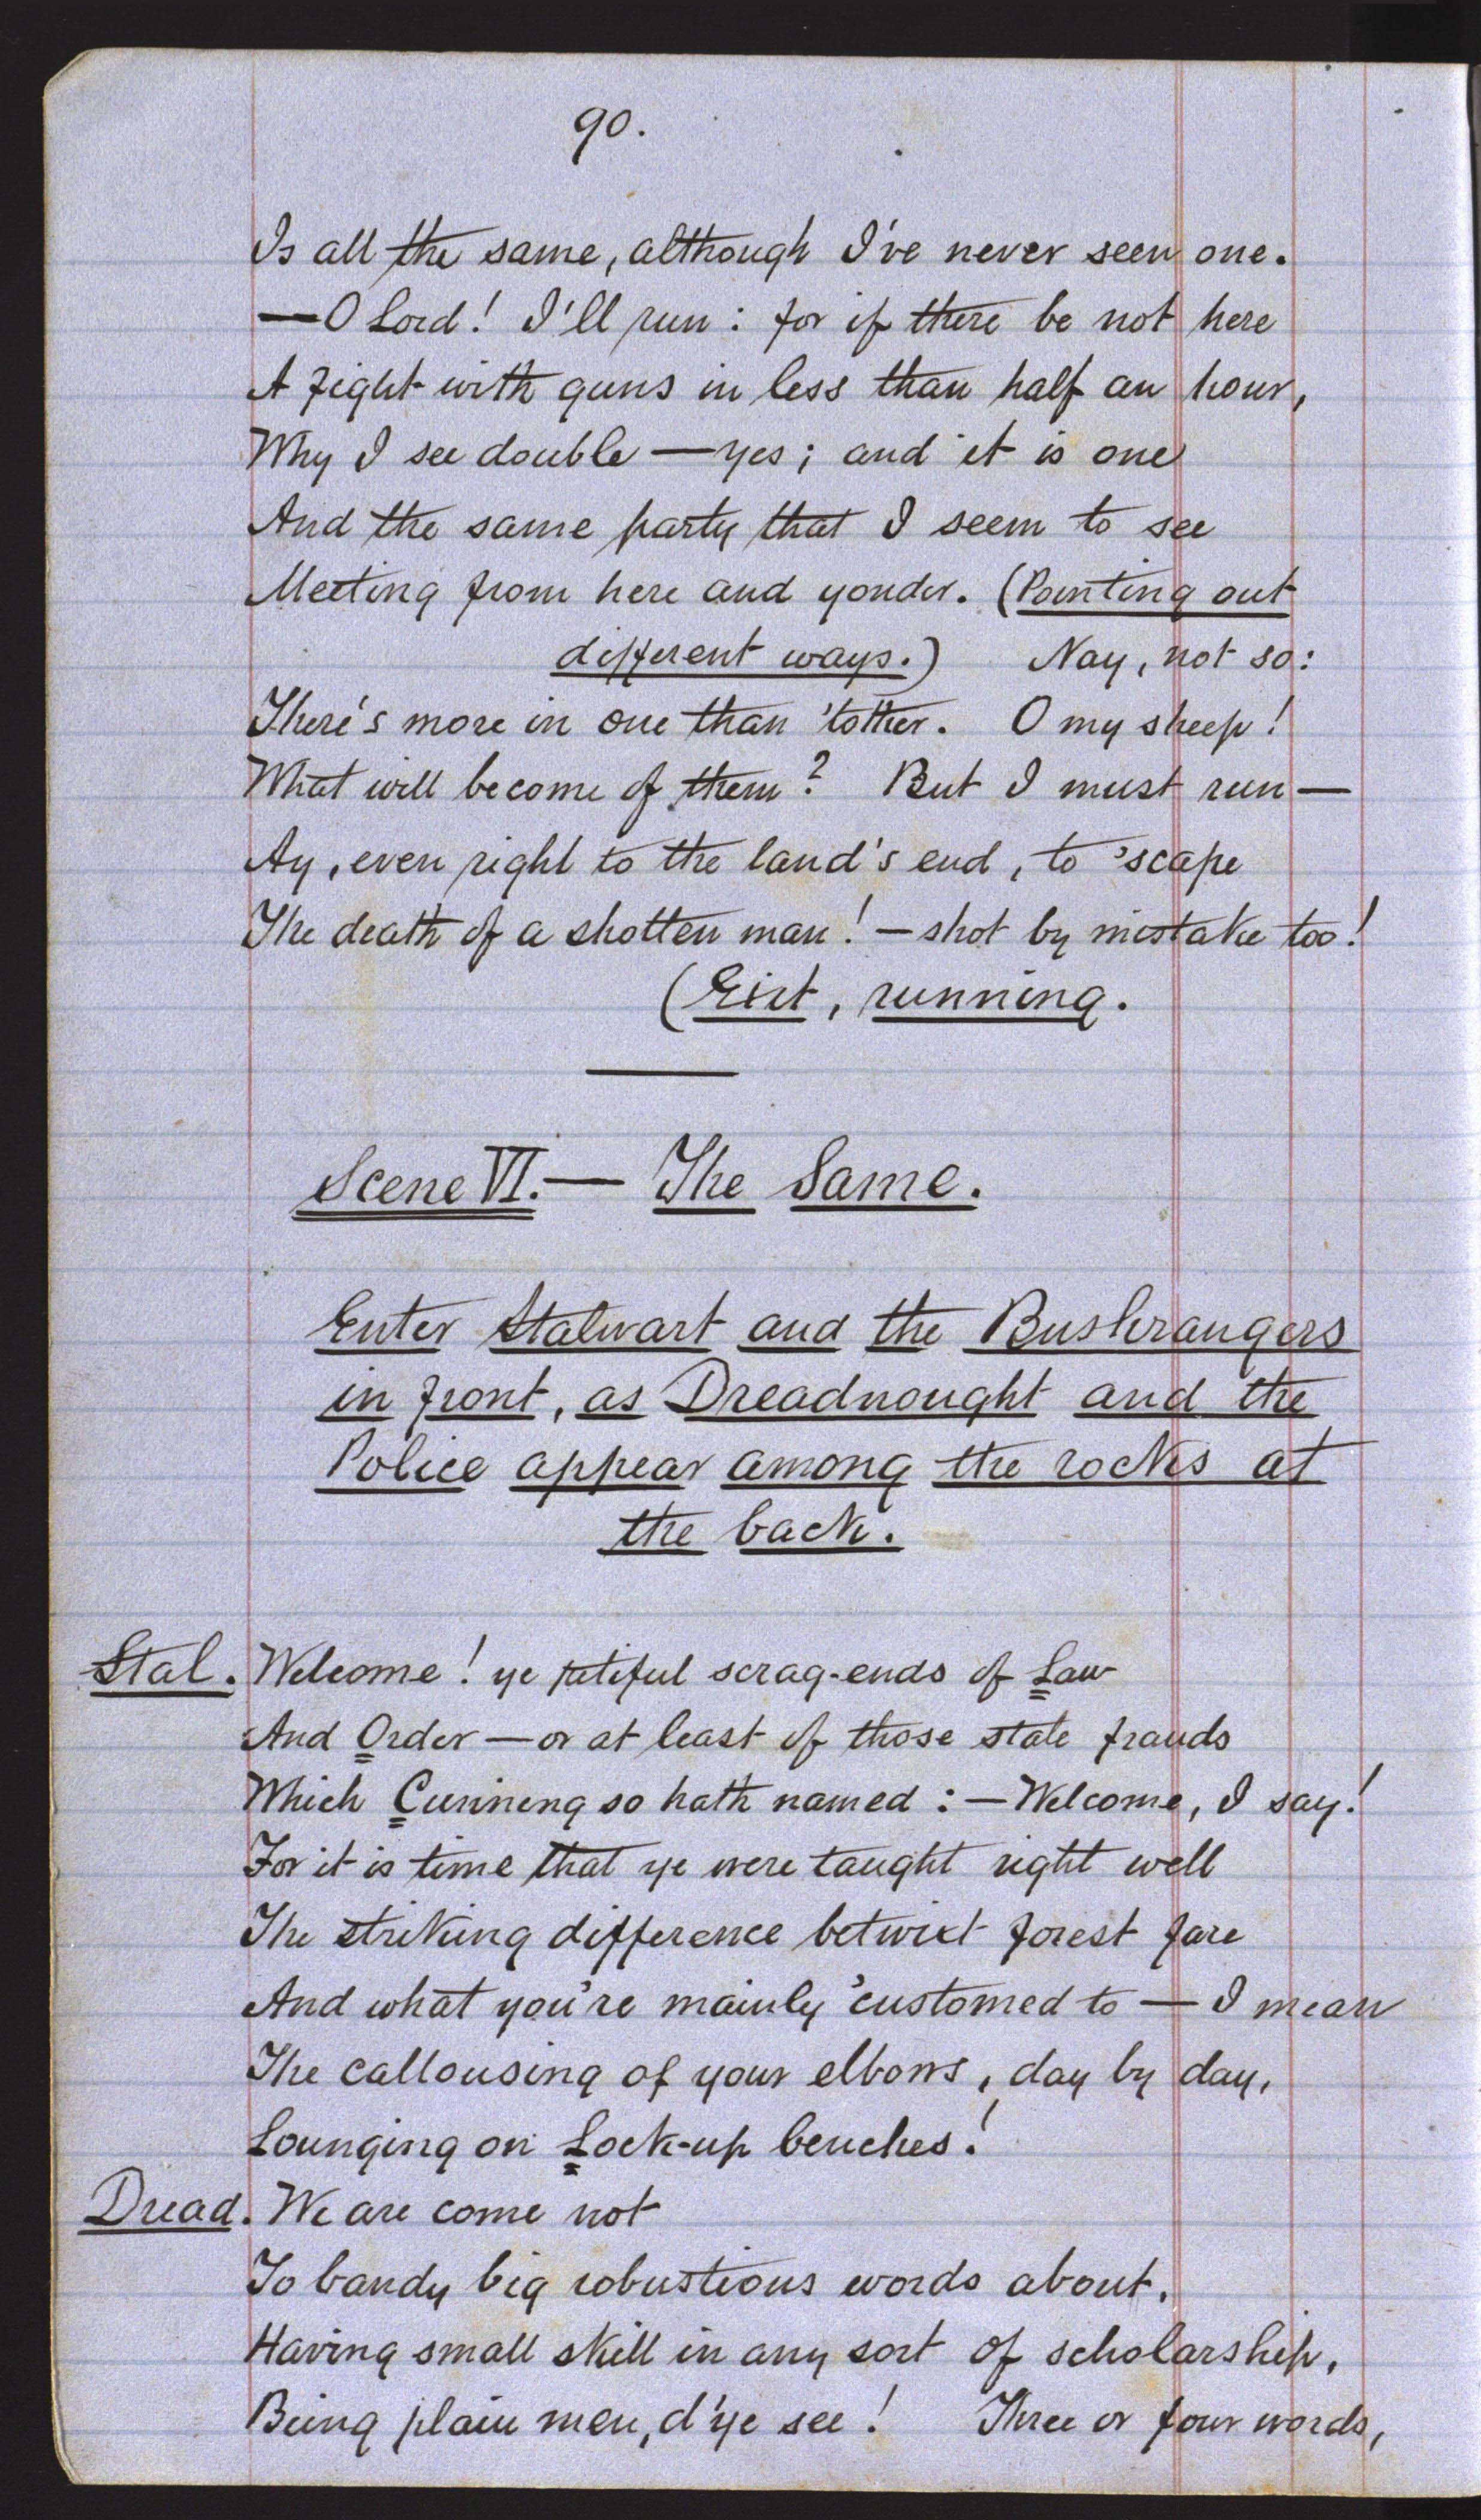 90.
Is all the same, although I've never seen one.
—O Lord! I'll run: for if there be not here
A fight with guns in less than half an hour,
Why I see double — yes; and it is one
And the same party that I seem to see
Meeting from here and yonder. (Pointing out
different ways.) Nay, not so:
There's more in one than 'tother. O my sheep!
What will become of them? But I must run —
Ay, even right to the land's end, to 'scape
The death of a shotten man! — shot by mistake too!
(Exit, running.
Scene VI. — The Same.
Enter Stalwart and the Bushrangers
in front, as Dreadnought and the
Police appear among the rocks at
the back.
Stal. Welcome! ye pitiful scrag-ends of Law
And Order — or at least of those state frauds
Which Cunning so hath named: — Welcome, I say!
For it is time that ye were taught right well
The striking difference betwixt forest fare
And what you're mainly 'customed to — I mean
The callousing of your elbows, day by day,
Lounging on Lock-up benches!
Dread. We are come not
To bandy big robustious words about,
Having small skill in any sort of scholarship,
Being plain men, d'ye see! Three or four words,